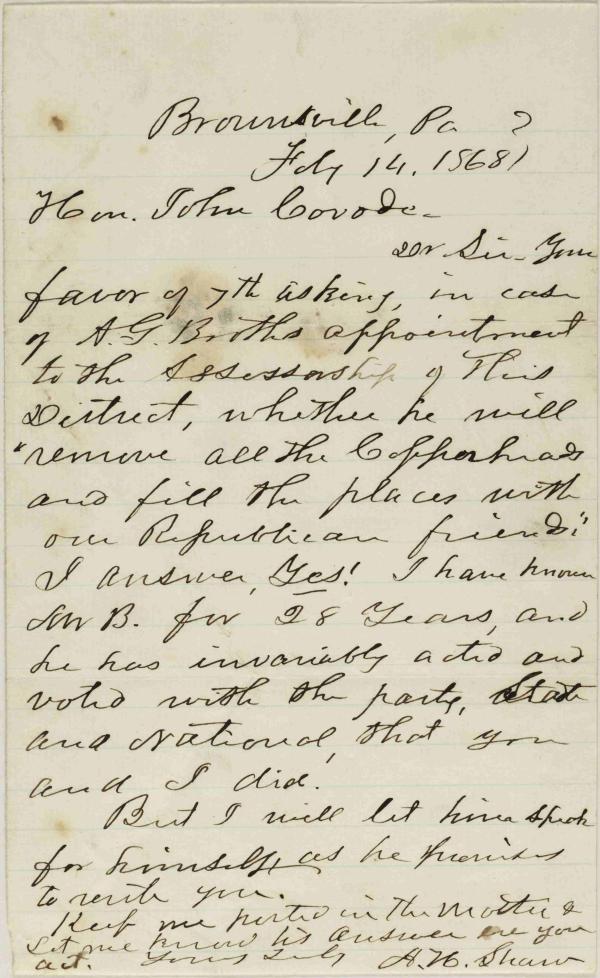 Brownsville, Pa
Feby 14, 1868
Hon. John Covode
Dr Sir - Your
favor of 7th asking, in case
of A. G. Booths appointment
to the Assessorship of This
District, whether he will
"remove all the Copperheads
and fill the places with
our Republican friends"
I answer, Yes! I have known
Mr B. for 28 Years, and
he has invariably acted and
voted with the party, State
and National, that you
and I did.
But I will let him speak
for himself, as he promises
to write you.
Keep me posted in the Matter &
Let me know his answer ere you
act. Yours Truly A. H. Shaw